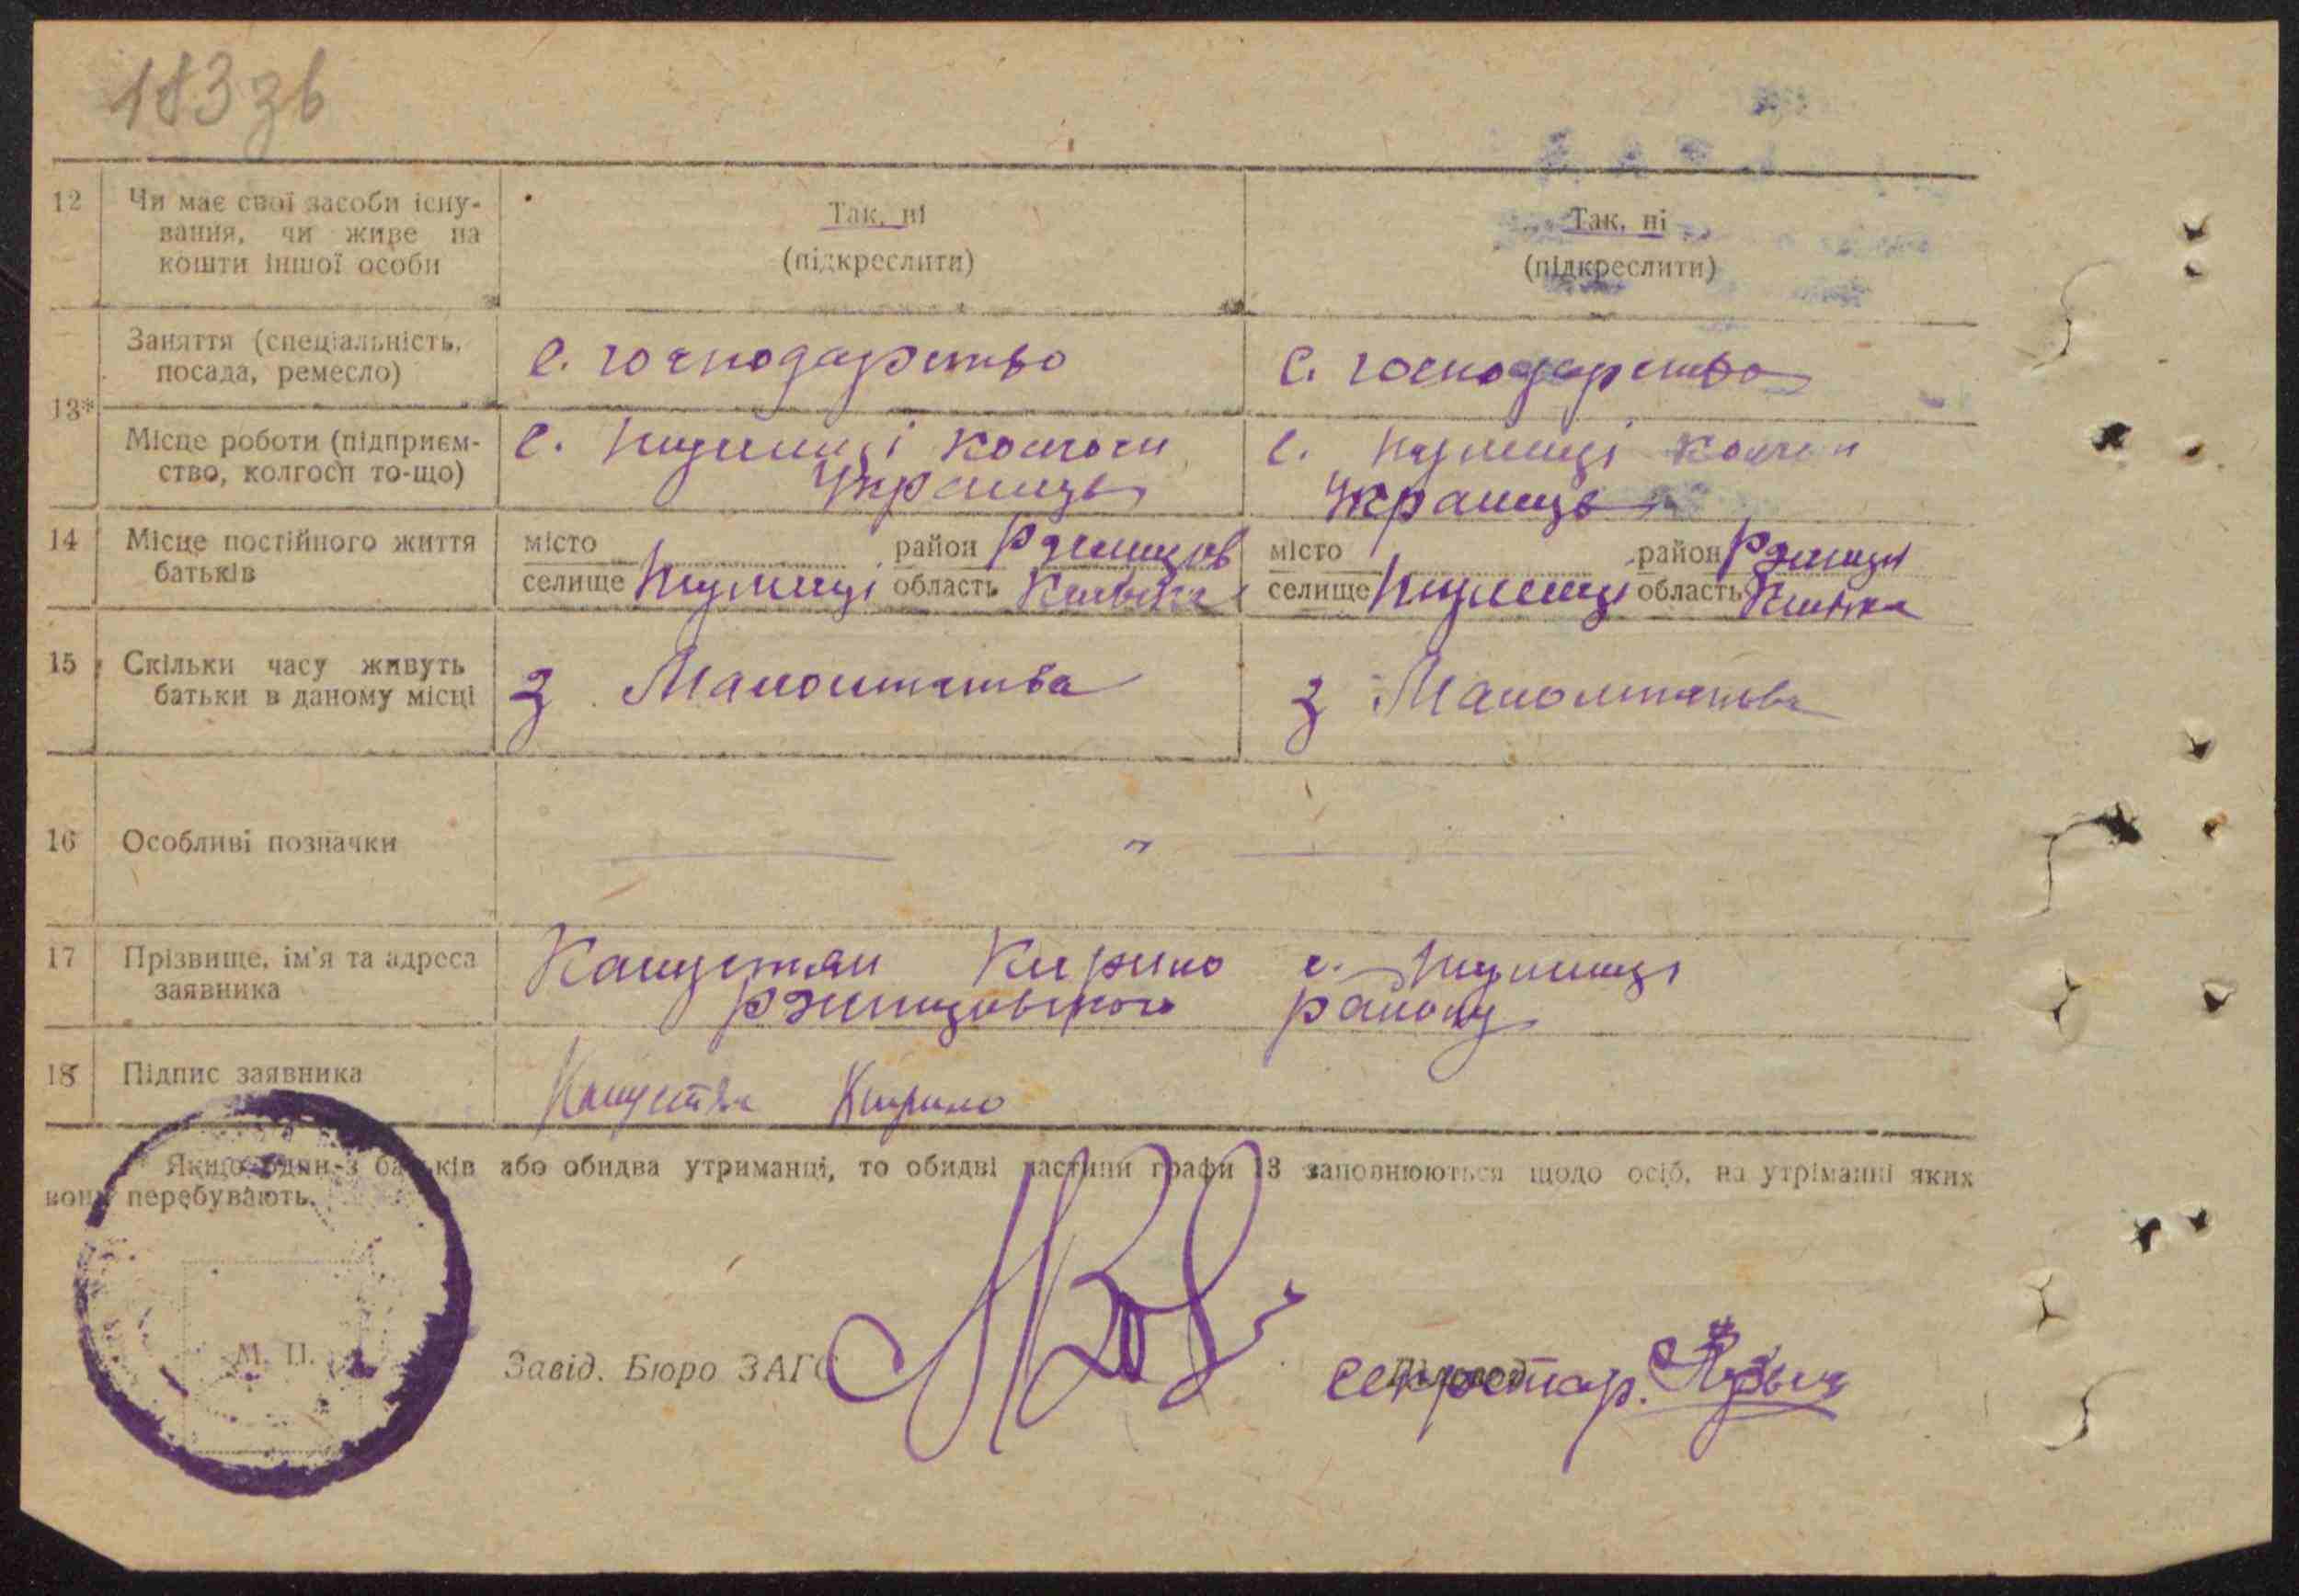 183 зв
12 Чи має свої засоби існу-
вання, чи живе на
кошти іншої особи
Так, ні
(підкреслити)
Так, ні
(підкреслити)
13*
Заняття (спеціальність,
посада, ремесло)
с. господарство
с. господарство
Місце роботи (підприєм-
ство, колгосп то-що)
с.
Українець
с.
Українець
14 Місце постійного життя
батьків
місто район
селище область
місто район
селище область
15 Скільки часу живуть
батьки в даному місці
З Малолітства
З Малолітства
16 Особливі позначки
— " —
17 Прізвище, ім'я та адреса
заявника
Капустян Кирило с.
Ржищівського району
18 Підпис заявника
Капустян Кирило
Якщо один з батьків або обидва утриманці, то обидві частини графи 13 заповнюються щодо осіб, на утріманні яких
вони перебувають.
М. П.
Завід. Бюро ЗАГС
Діловод
секретар.